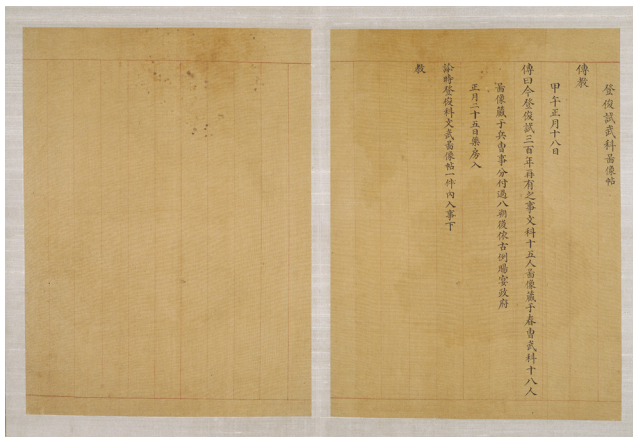 登俊試武科啚像帖
傳教
甲午正月十八日
傳曰今登俊試三百年再有之事文科十五人啚像藏于春曺武科十八人
啚像藏于兵曺事分付過八朔後依古例賜宴政府
正月二十五日藥房入
診時登俊科文武啚像帖一件內入事下
教